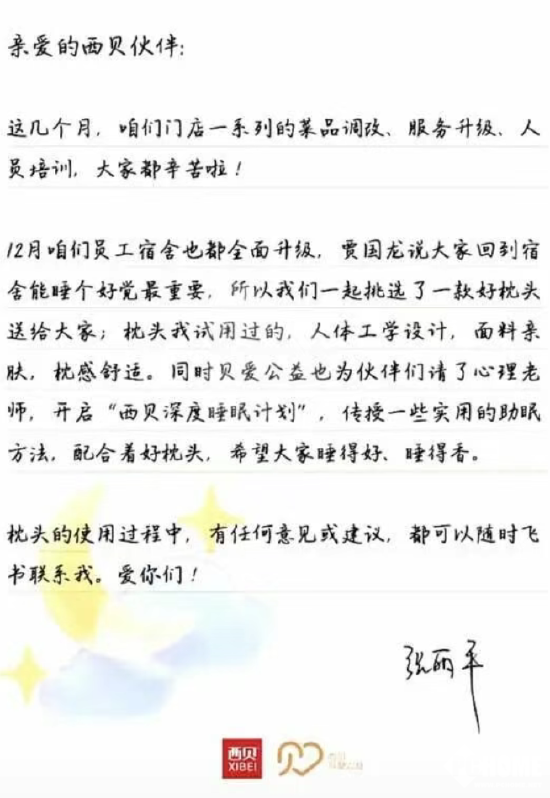 亲爱的西贝伙伴:
这几个月，咱们门店一系列的菜品调改、服务升级、人
员培训，大家都辛苦啦！
12月咱们员工宿舍也都全面升级，贾国龙说大家回到宿
舍能睡个好觉最重要，所以我们一起挑选了一款好枕头
送给大家；枕头我试用过的，人体工学设计，面料亲
肤，枕感舒适。同时贝爱公益也为伙伴们请了心理老
师，开启“西贝深度睡眠计划”，传授一些实用的助眠
方法，配合着好枕头，希望大家睡得好、睡得香。
枕头的使用过程中，有任何意见或建议，都可以随时飞
书联系我。爱你们！
张丽平
西贝
XIBEI